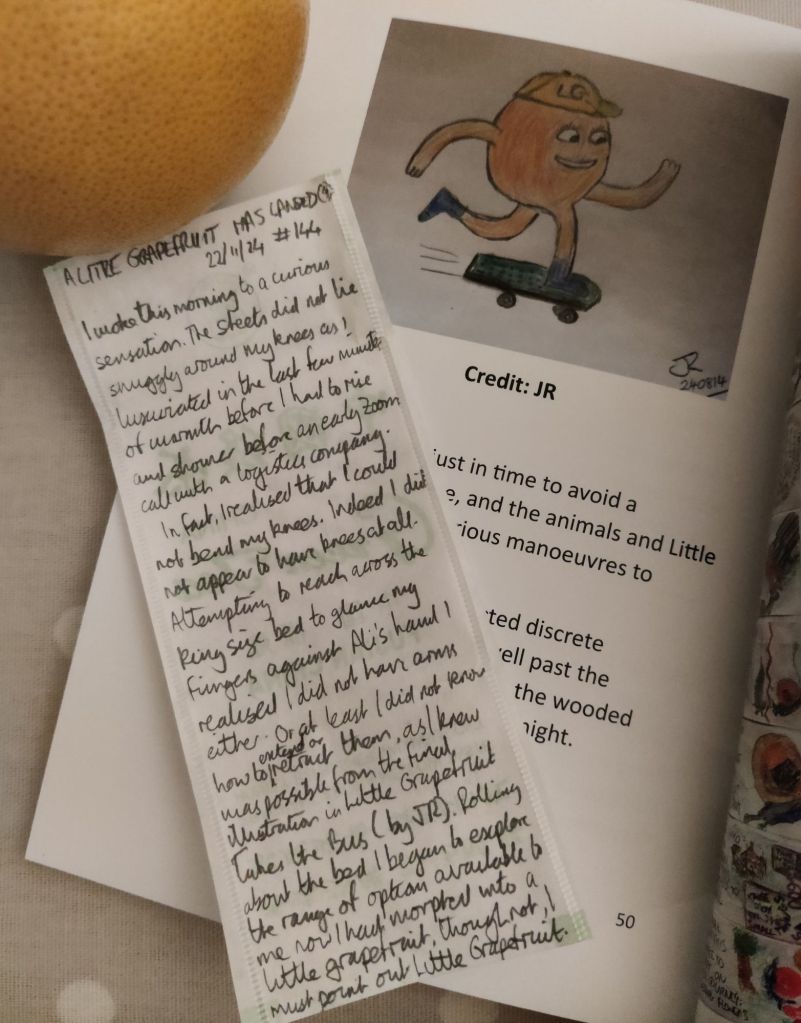 LG
JR
240814
Credit: JR
just in time to avoid a
e, and the animals and Little
rious manoeuvres to
ted discrete
ell past the
the wooded
night.
50
A LITTLE GRAPEFRUIT HAS LANDED
22/11/24 #144
I woke this morning to a curious
sensation. The sheets did not lie
snuggly around my knees as I
luxuriated in the last few minutes
of warmth before I had to rise
and shower before an early Zoom
call with a logistics company.
In fact, I realised that I could
not bend my knees. Indeed I did
not appear to have knees at all.
Attempting to reach across the
King size bed to glance my
fingers against Ali's hand I
realised I did not have arms
either. Or at least I did not know
how to extend or retract them, as I knew
was possible from the final
illustration in Little Grapefruit
Takes the Bus (by JR). Rolling
about the bed I began to explore
the range of option available to
me now I had morphed into a
little grapefruit, though not, I
must point out Little Grapefruit.